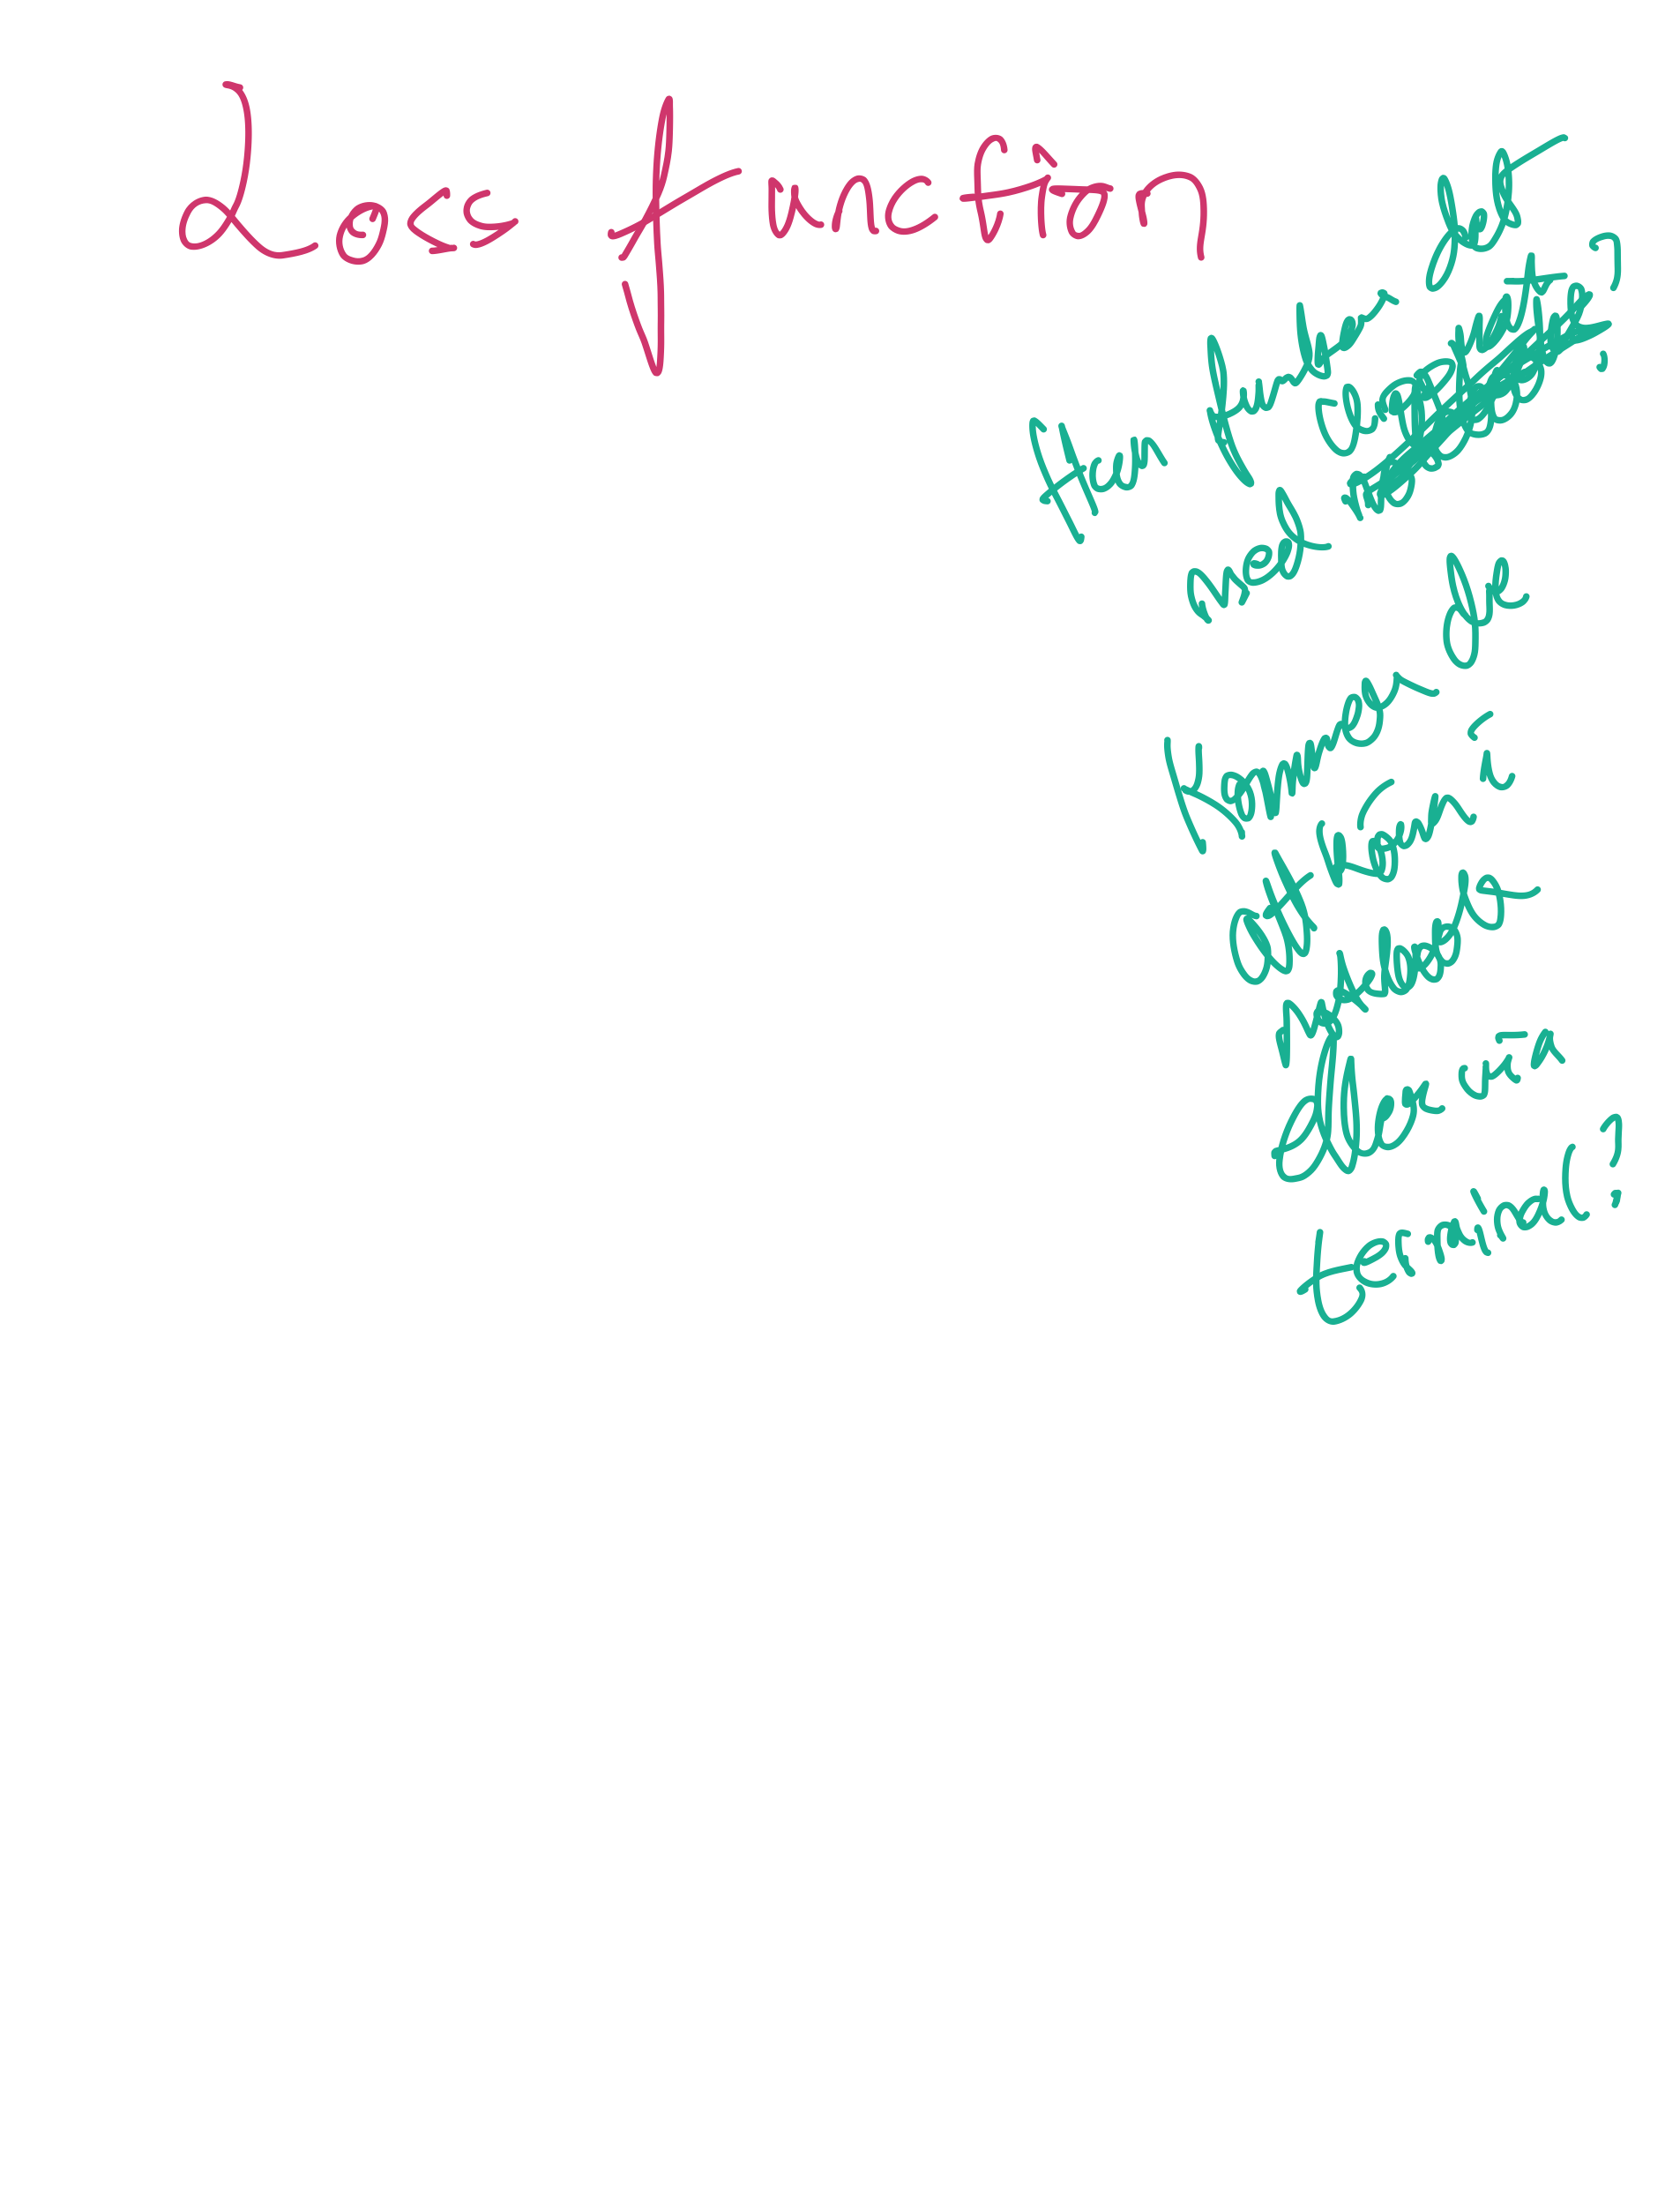 Loss function
Hur funkar det
med användt?
Kommer de
att köra i
notebook
eller via
terminal?